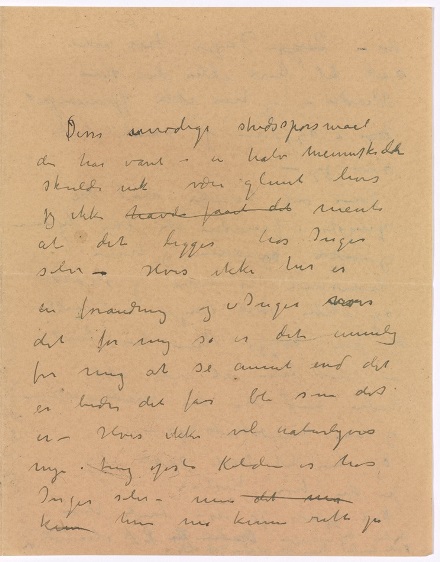 Disse uværdige stridsspørsmaal
der har vært i en halv menneskealder
skulde nok være glemt hvis
jeg ikke havde faaet det mente
at det ligger hos Inger
selv – Hvis ikke her er
en forandring og Inger
det for mig så er det umulig
for mig at se annet end det
er bedre det får bli som det
er – Hvis ikke vil naturligvis
mye. Ting Kilden er hos
Inger selv – men det må
kun hun må kunne rette på